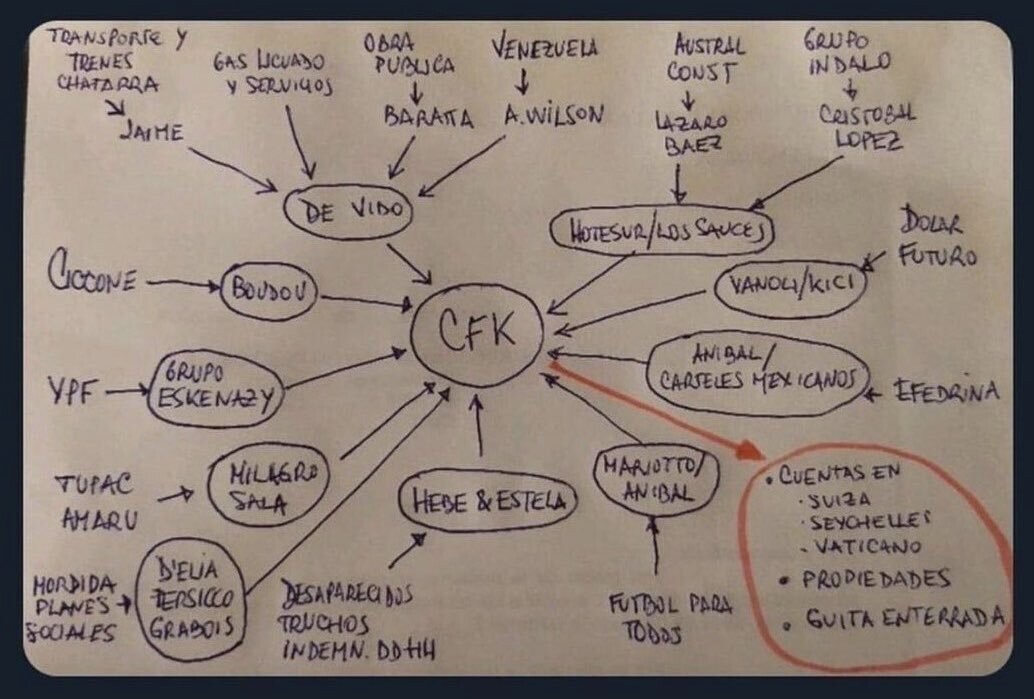 TRANSPORTE Y
TRENES
CHATARRA
JAIME
GAS LICUADO
Y SERVICIOS
OBRA
PUBLICA
BARATTA
VENEZUELA
A. WILSON
AUSTRAL
CONST
LAZARO
BAEZ
GRUPO
INDALO
CRISTOBAL
LOPEZ
DE VIDO
HOTESUR/LOS SAUCES
DOLAR
FUTURO
CICCONE
BOUDOU
VANOLI/KICI
CFK
YPF
GRUPO
ESKENAZY
ANIBAL/
CARTELES MEXICANOS
EFEDRINA
TUPAC
AMARU
MILAGRO
SALA
HEBE & ESTELA
MARIOTTO/
ANIBAL
• CUENTAS EN
· SUIZA
· SEYCHELLES
· VATICANO
• PROPIEDADES
• GUITA ENTERRADA
MORDIDA
PLANES
SOCIALES
D'ELIA
PERSICCO
GRABOIS
DESAPARECIDOS
TRUCHOS
INDEMN. DDHH
FUTBOL PARA
TODOS